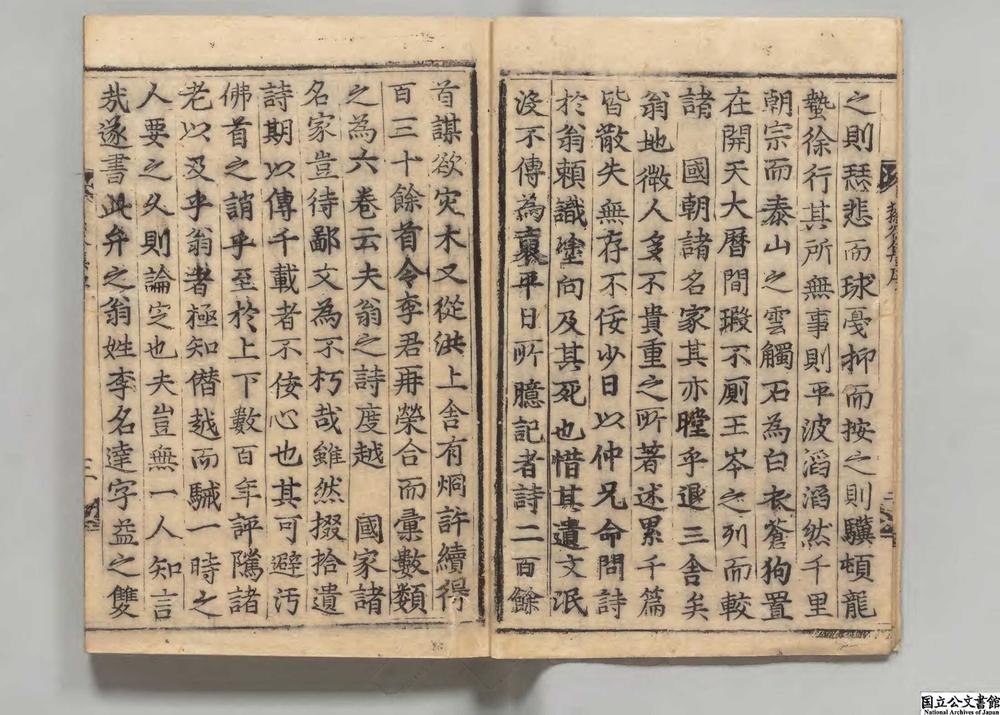 之則瑟悲而球戛抑而按之則驥頓龍
蟄徐行其所無事則平波滔滔然千里
朝宗而泰山之雲觸石為白衣蒼狗置
在開天大曆間瑕不厠王岑之列而較
諸　國朝諸名家其亦瞠乎退三舍矣
翁地微人多不貴重之所著述累千篇
皆散失無存不佞少日以仲兄命問詩
於翁頼識塗向及其死也惜其遺文泯
沒不傳為裒平日所臆記者詩二百餘
首謀欲灾木又從洪上舍有炯許續得
百三十餘首令李君再榮合而彙數類
之為六卷云夫翁之詩度越　國家諸
名家豈待鄙文為不朽哉雖然掇拾遺
詩期以傳千載者不佞心也其可避汚
佛首之誚乎至於上下數百年評隲諸
老以及乎翁者極知僭越而駴一時之
人要之久則論㝎也夫豈無一人知言
㢤遂書此弁之翁姓李名達字益之雙
国立公文書館
National Archives of Japan